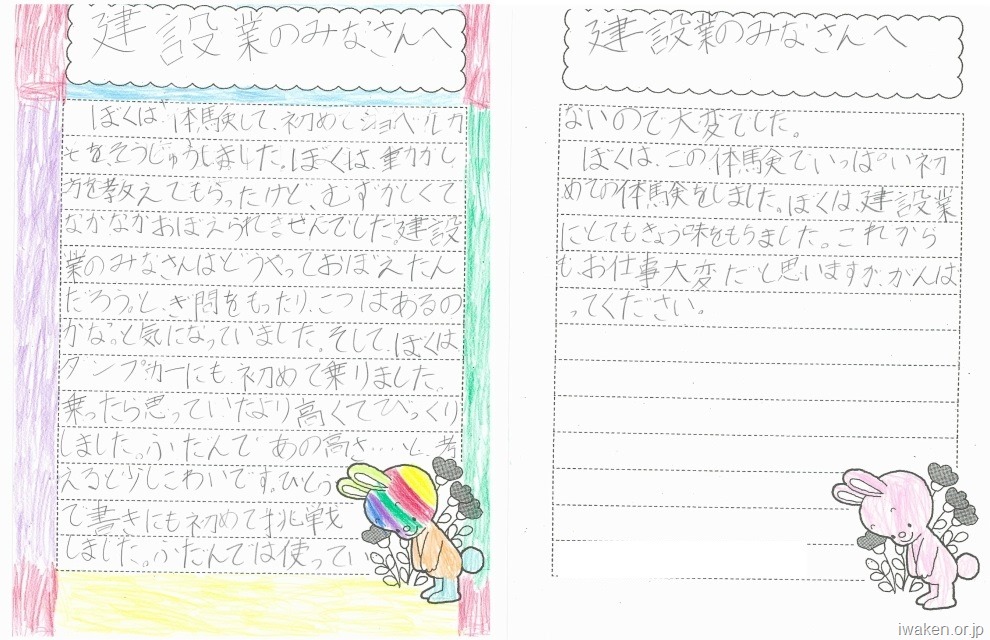 建設業のみなさんへ
ぼくは、体験して、初めてショベルカ
ーを、そうじゅうしました。ぼくは、動かし
方を教えてもらったけど、むずかしくて
なかなかおぼえられませんでした。建設
業のみなさんはどうやっておぼえたん
だろう。と、ぎ問をもったり、こつはあるの
かな。と気になっていました。そして、ぼくは
ダンプカーにも、初めて乗りました。
乗ったら思っていたより高くてびっくり
しました。ふだんであの高さ…と、考
えると少しこわいです。ひとつ
で書きにも初めて挑戦
しました。ふだんでは使ってい
建設業のみなさんへ
ないので大変でした。
ぼくは、この体験でいっぱい初
めての体験をしました。ぼくは、建設業
にとてもきょう味をもちました。これから
も、お仕事大変だと思いますが、がんば
ってください。
iwaken.or.jp